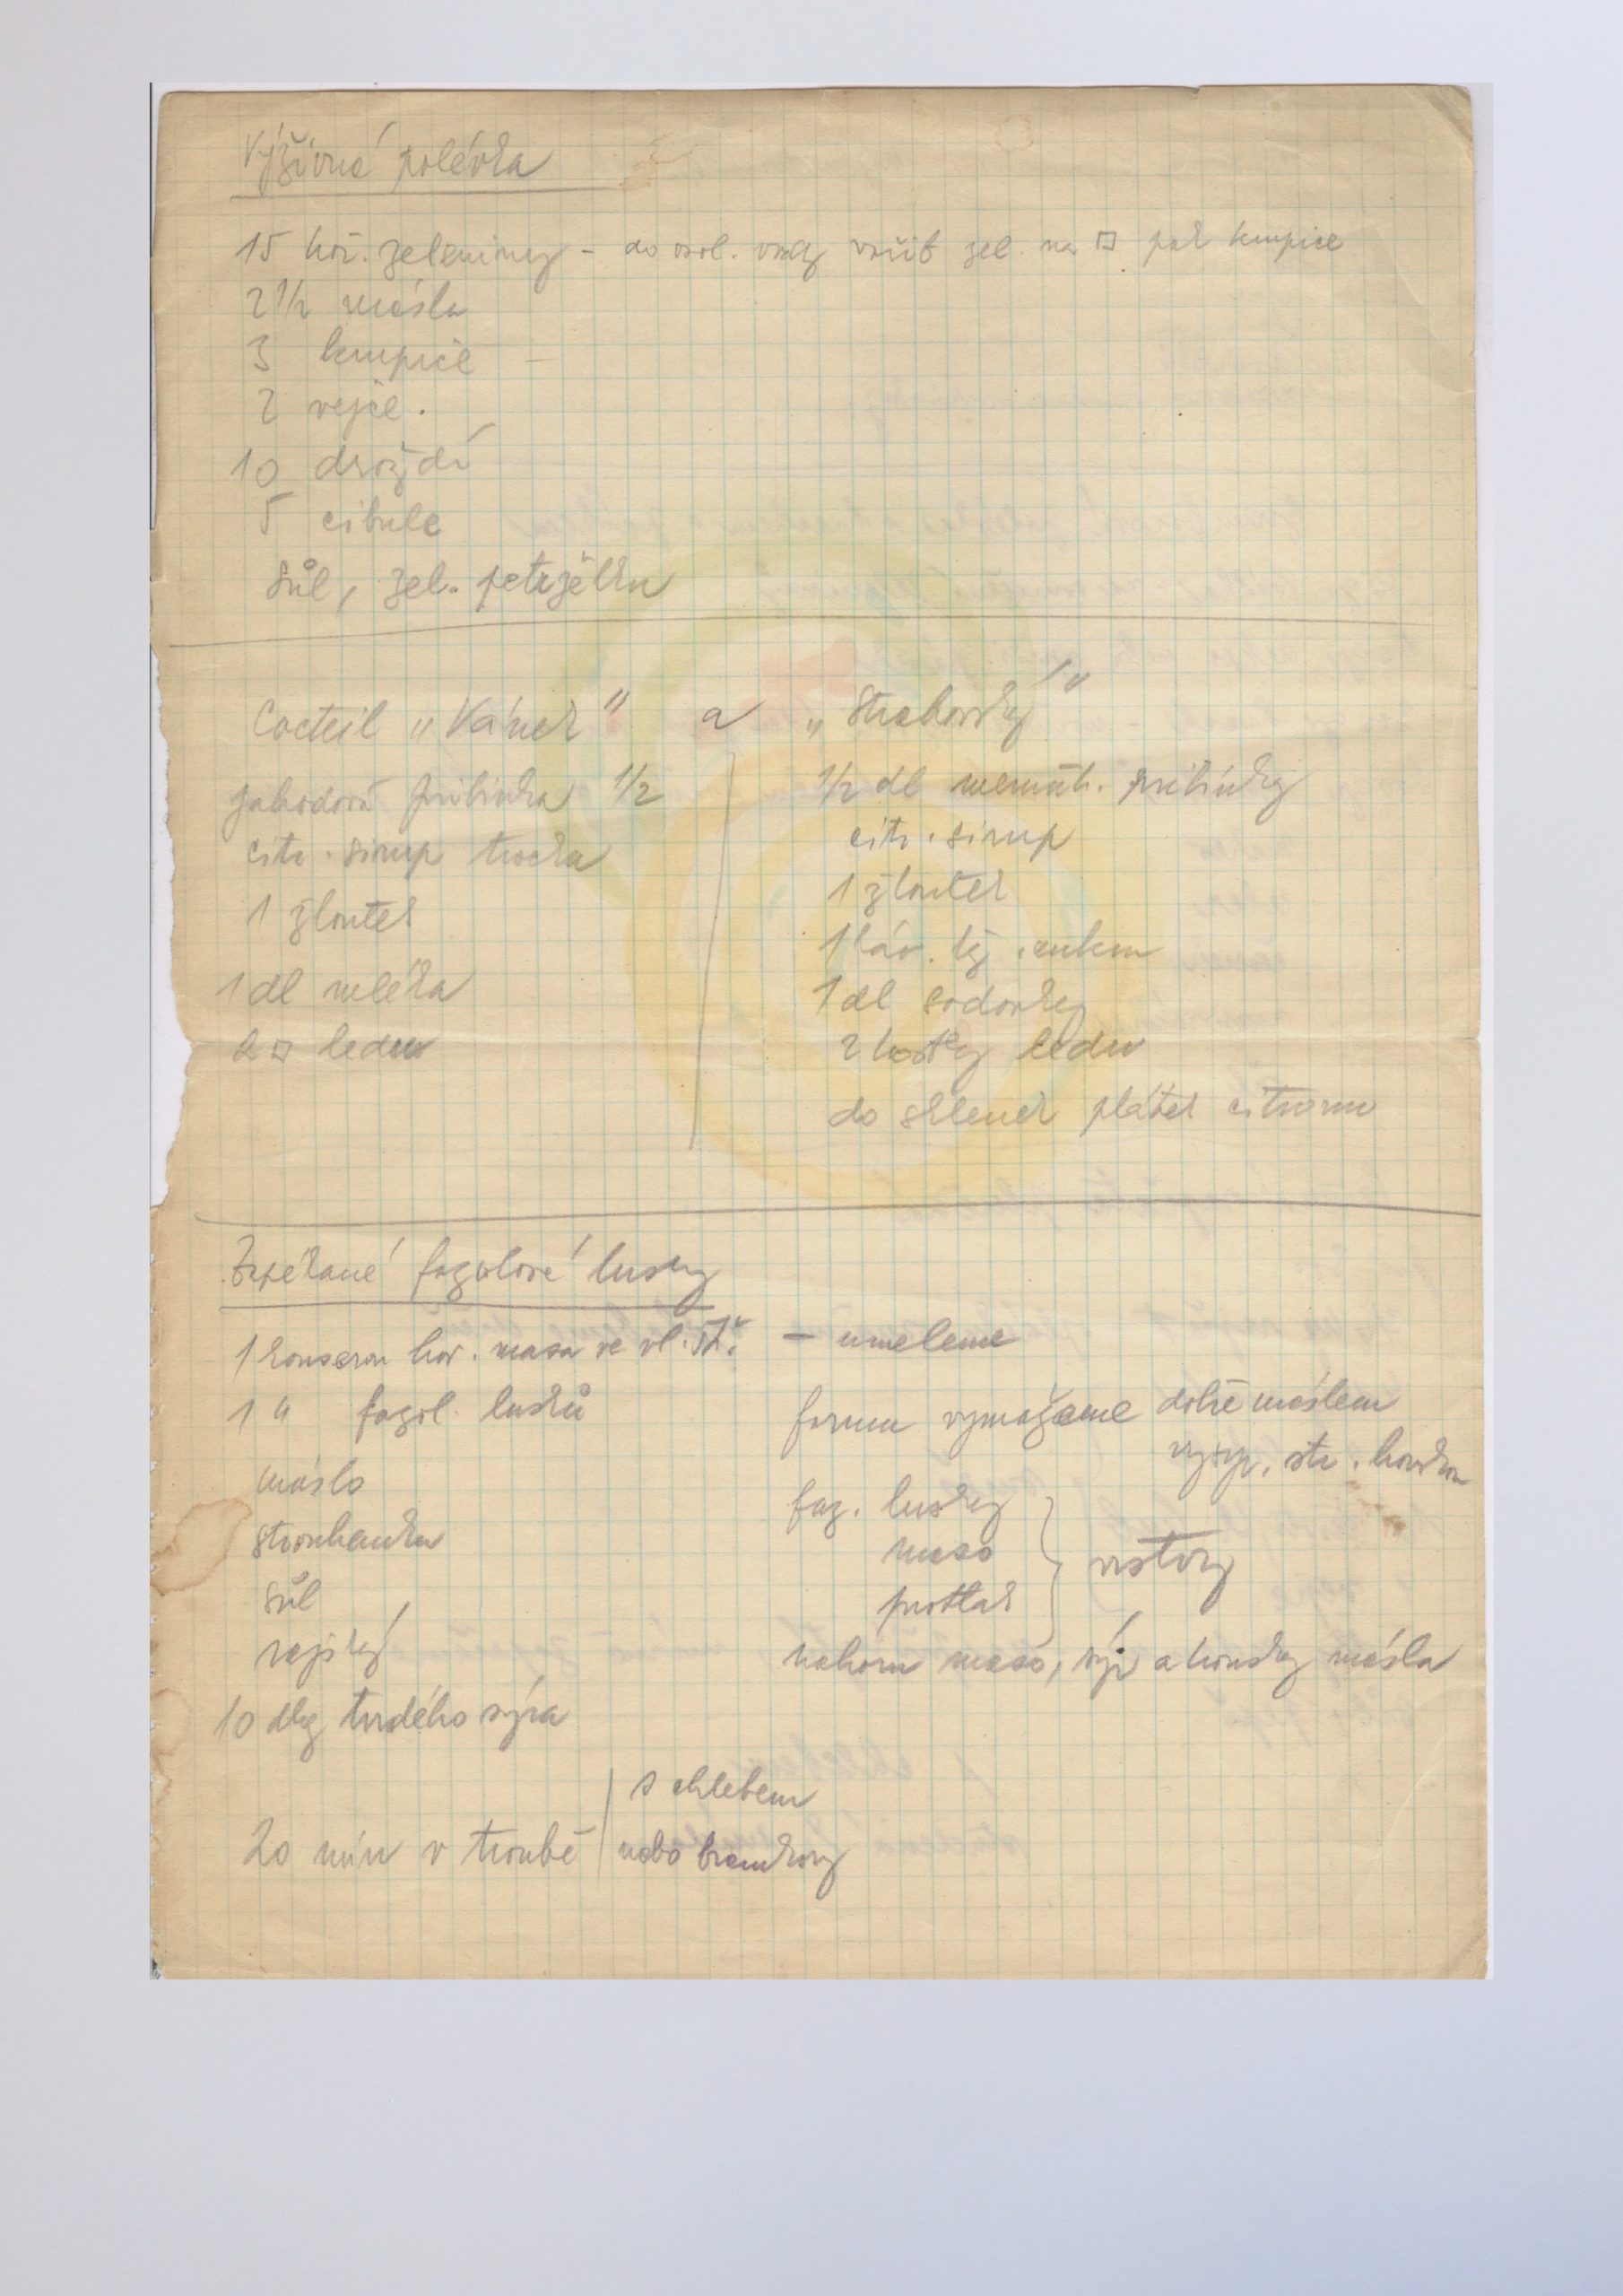 Výživná polévka
15 koř. zeleniny – do osol. vody vařit zel. na □ pak krupice
2 1/2 másla
3 krupice –
2 vejce.
10 droždí
5 cibule
sůl, zel. petrželku
Cocteil „Vánek" a „Strahovský"
jahodová pribinka 1/2
citr. sirup trocha
1 žloutek
1 dl mléka
2 □ ledu
1/2 dl meruňk. pribinky
citr. sirup
1 žloutek
1 káv. lž. cukru
1 dl sodovky
2 kostky ledu
do sklenek plátek citronu
Zapékané fazolové lusky
1 konserva hov. masa ve vl. šť. – umeleme
1 " fazol. lusků
máslo
strouhanku
sůl
rajský
10 dkg tvrdého sýra
formu vymažeme dobře máslem
vysyp. str. houskou
faz. lusky
maso
protlak
vrstvy
nahoru maso, sýr a kousky másla
20 min v troubě
s chlebem
nebo brambory